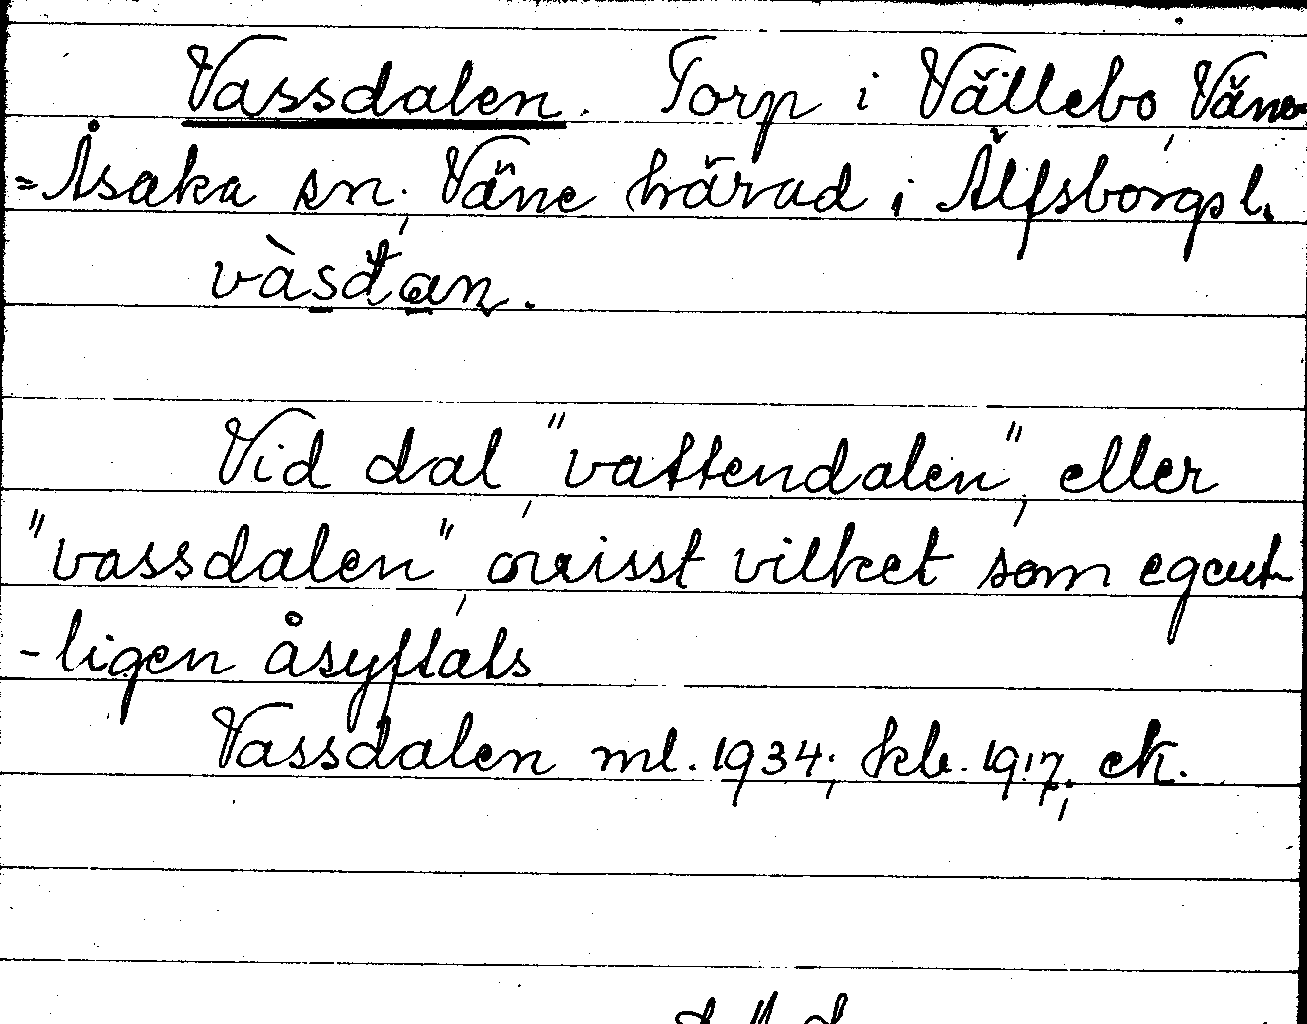 Vassdalen. Torp i Vällebo, Väne-
=Åsaka sn; Väne härad i Älfsborgs l.
vàsđan.
Vid dal "vattendalen", eller
"vassdalen", ovisst vilket som egent-
-ligen åsyftats
Vassdalen ml. 1934; kb. 1917; ek.